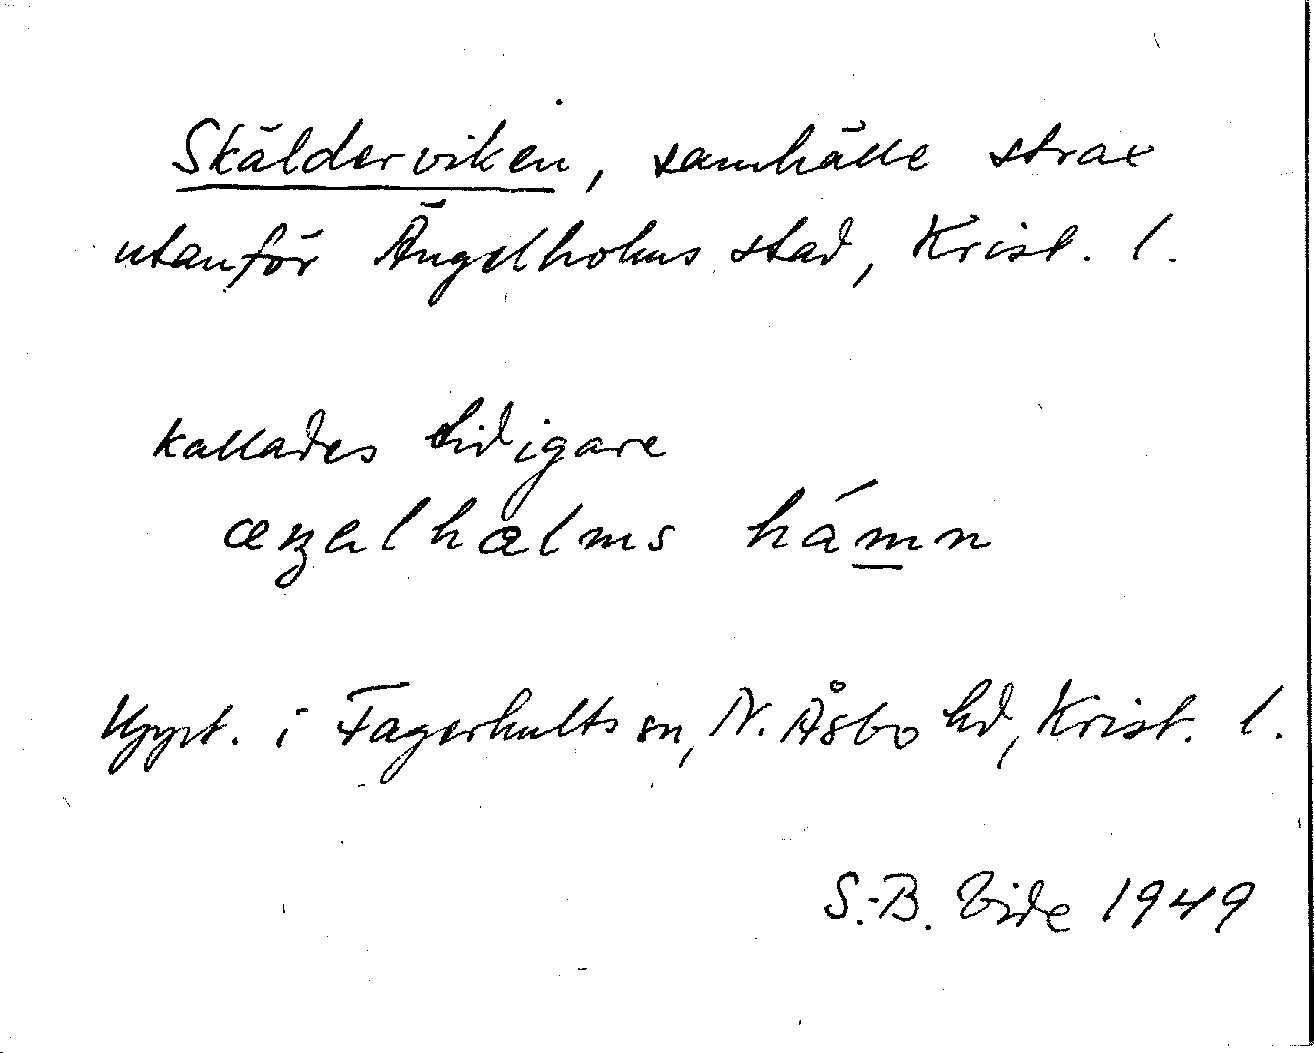 Skälderviken, samhälle strax
utanför Ängelholms stad, Krist. l.
kallades tidigare
æŋəlhɑlms hámn
Uppt. i Fagerhults sn, N. Åsbo hd, Krist. l.
S.-B. Vide 1949